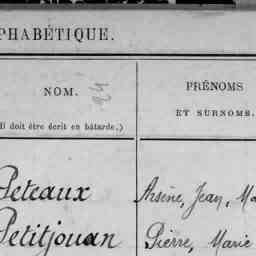 PHABÉTIQUE.
NOM. 24
PRÉNOMS
ET SURNOMS.
(Il doit être écrit en bâtarde.)
Peteaux Arsène, Jean, Ma
Petitjouan Pierre, Marie